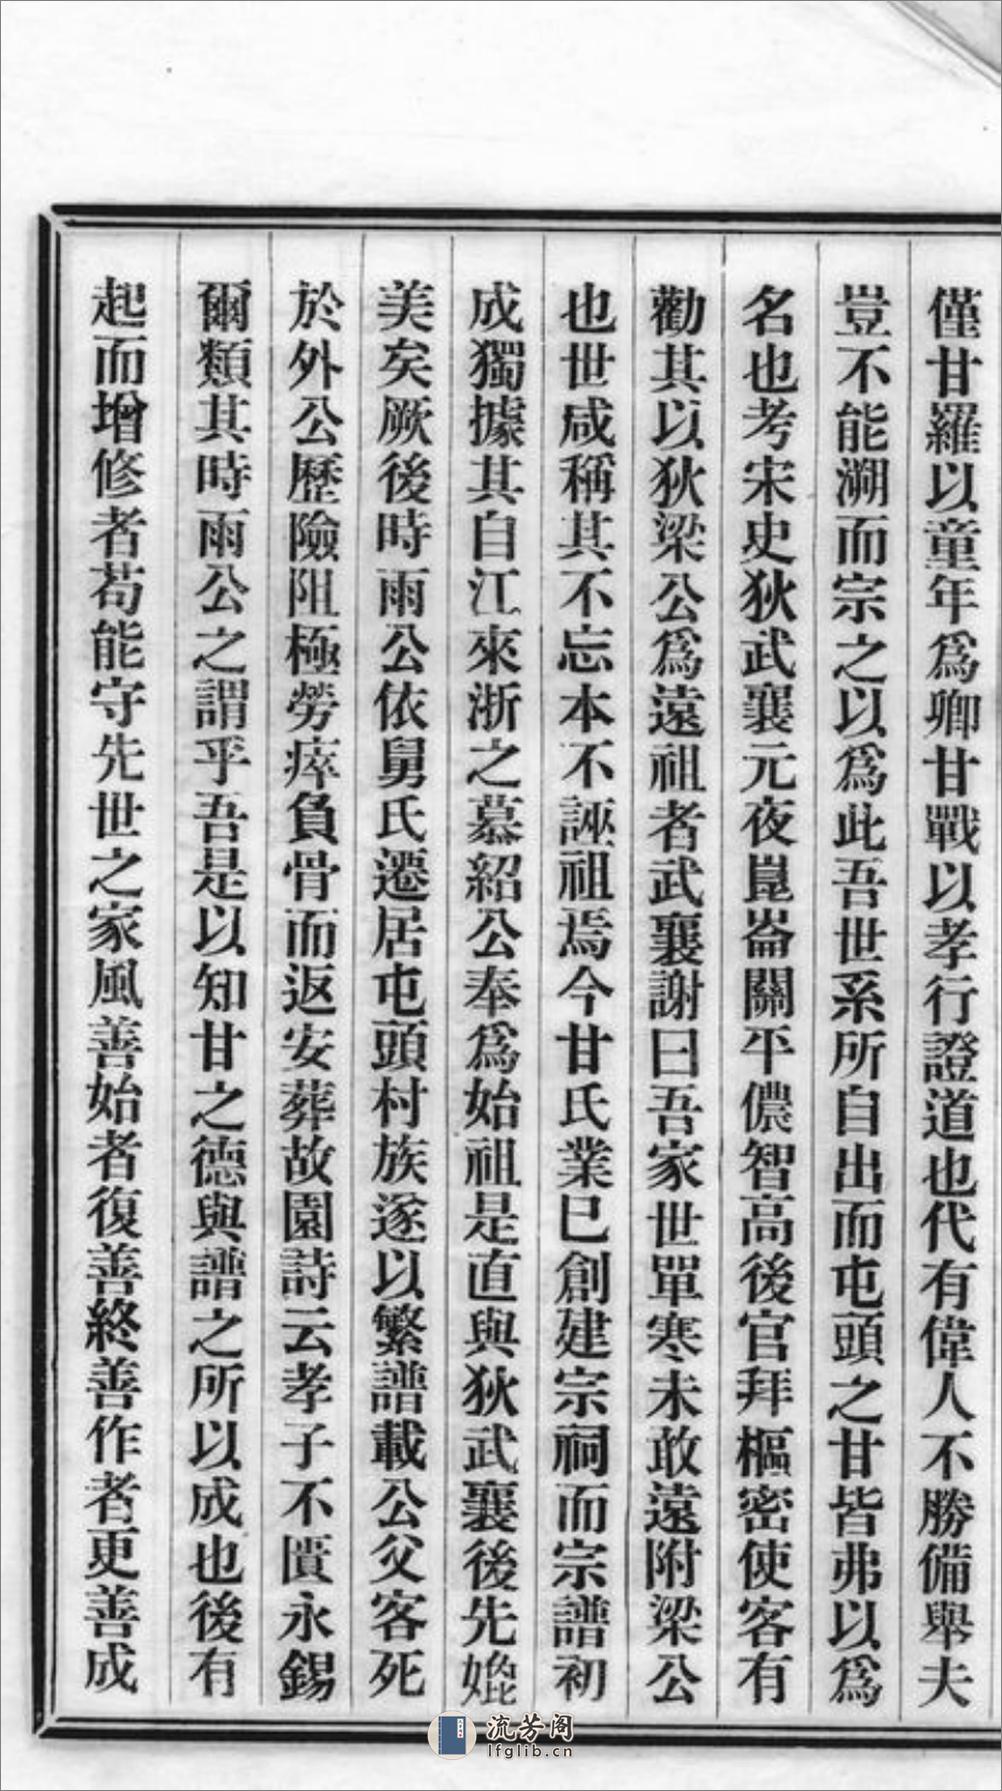 僅甘羅以童年爲卿甘戰以孝行證道也代有偉人不勝備舉夫
豈不能溯而宗之以爲此吾世系所自出而屯頭之甘皆弗以爲
名也考宋史狄武襄元夜崑崙關平儂智高後官拜樞密使客有
勸其以狄梁公爲遠祖者武襄謝曰吾家世單寒未敢遠附梁公
也世咸稱其不忘本不誣祖焉今甘氏業已創建宗祠而宗譜初
成獨據其自江來浙之慕紹公奉爲始祖是直與狄武襄後先媲
美矣厥後時雨公依舅氏遷居屯頭村族遂以繁譜載公父客死
於外公歷險阻極勞瘁負骨而返安葬故園詩云孝子不匱永錫
爾類其時雨公之謂乎吾是以知甘之德與譜之所以成也後有
起而增修者苟能守先世之家風善始者復善終善作者更善成
流芳阁
lfglib.cn